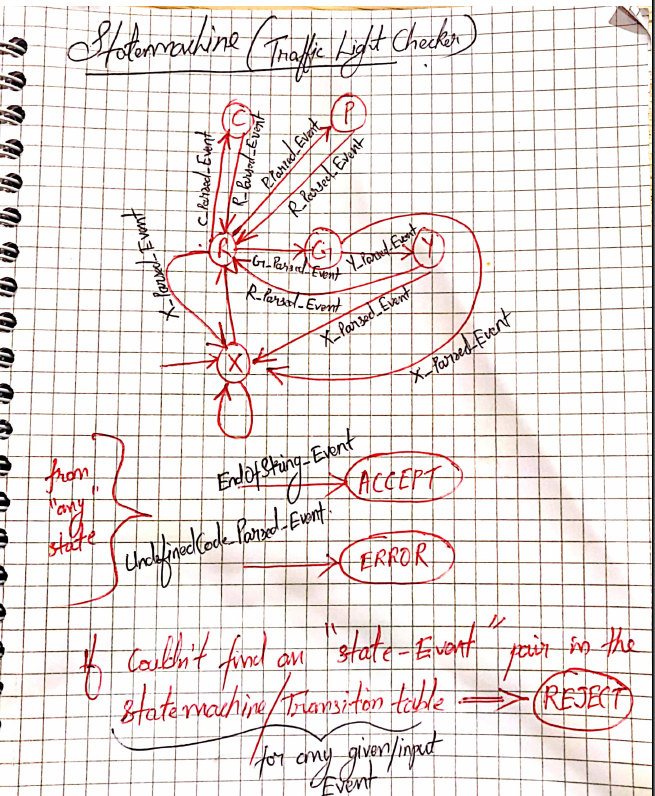 Statemachine (Traffic Light Checker)
C
P
C_Parsed_Event
R_Parsed_Event
P_Parsed_Event
R_Parsed_Event
X_Parsed_Event
R
G
Y
G_Parsed_Event
Y_Parsed_Event
R_Parsed_Event
X_Parsed_Event
X_Parsed_Event
X
from
"any"
state
EndOfString_Event
ACCEPT
UndefinedCode_Parsed_Event
ERROR
If Couldn't find an "state-Event" pair in the
statemachine/Transition table ⇒ REJECT
for any given/input
Event